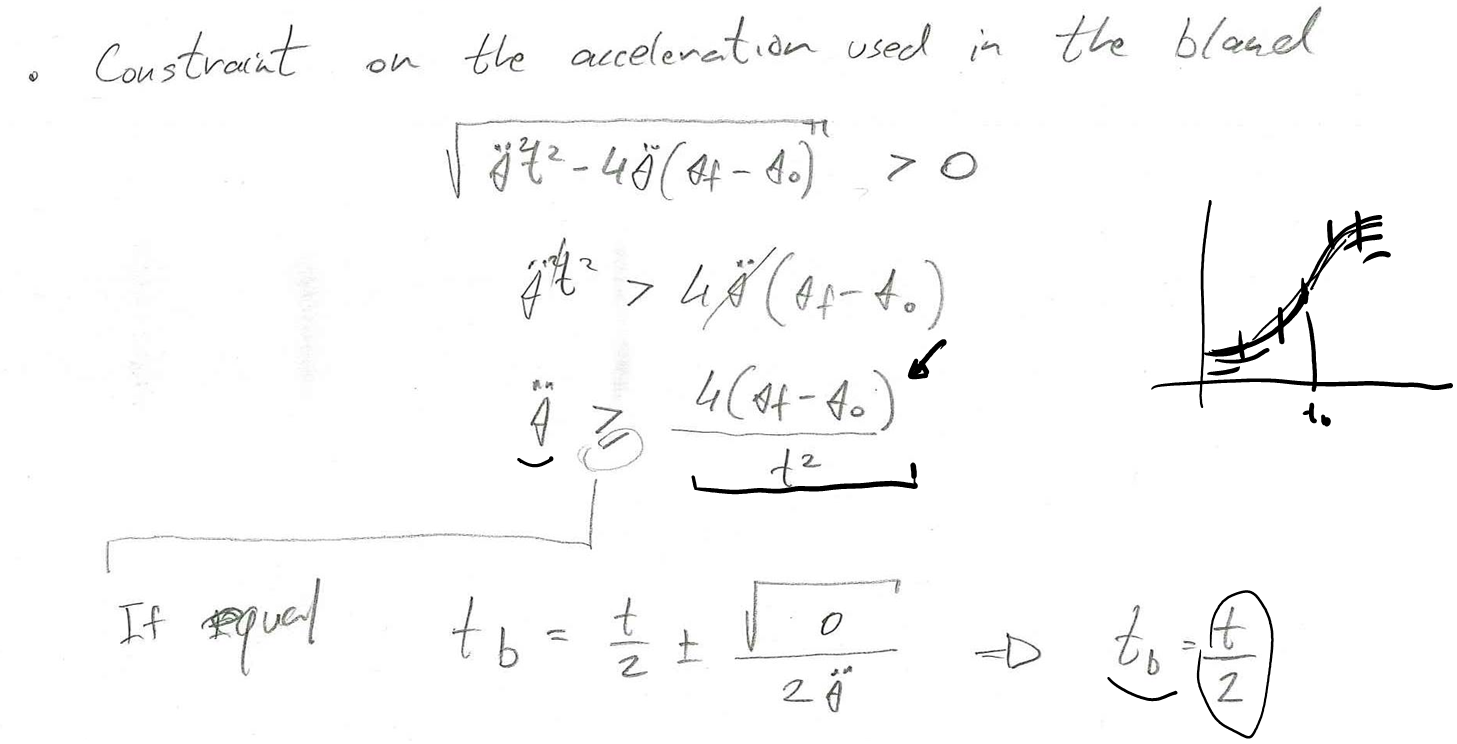 • Constraint on the acceleration used in the bland
√(θ̈²t² - 4θ̈(θf - θ₀)) > 0
θ̈²t² > 4θ̈(θf - θ₀)
θ̈ ≥ 4(θf - θ₀) / t²
t_b
If equal t_b = t/2 ± √0 / 2θ̈ ⇒ t_b = t/2